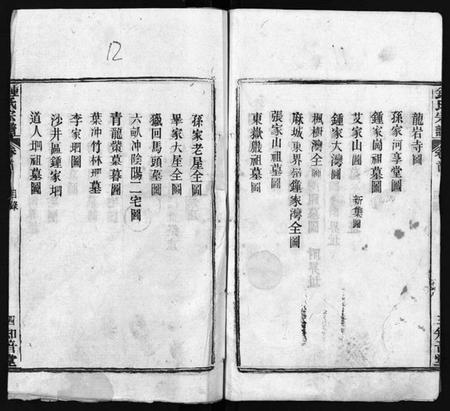 龍岩寺圖
孫家河享堂圖
鍾家崗祖墓圖
艾家山圖 新集圖
鍾家大灣圖
楓樹灣全圖
麻城東界嶺鍾家灣全圖
張家山祖墓圖
東嶽嚴祖墓圖
12
孫家老屋全圖
畢家大屋全圖
獵回馬頭墓圖
六畝冲陰陽二宅圖
青龍墓圖
葉冲竹林墓
李家垇圖
沙井區鍾家垇
道人垇祖墓圖
鍾氏宗譜
目錄
四知音堂